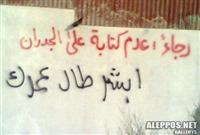 رجاءً: عدم كتابة على الجدران
ابشر طال عمرك
WWW.ALEPPOS.NET
GALLERYS